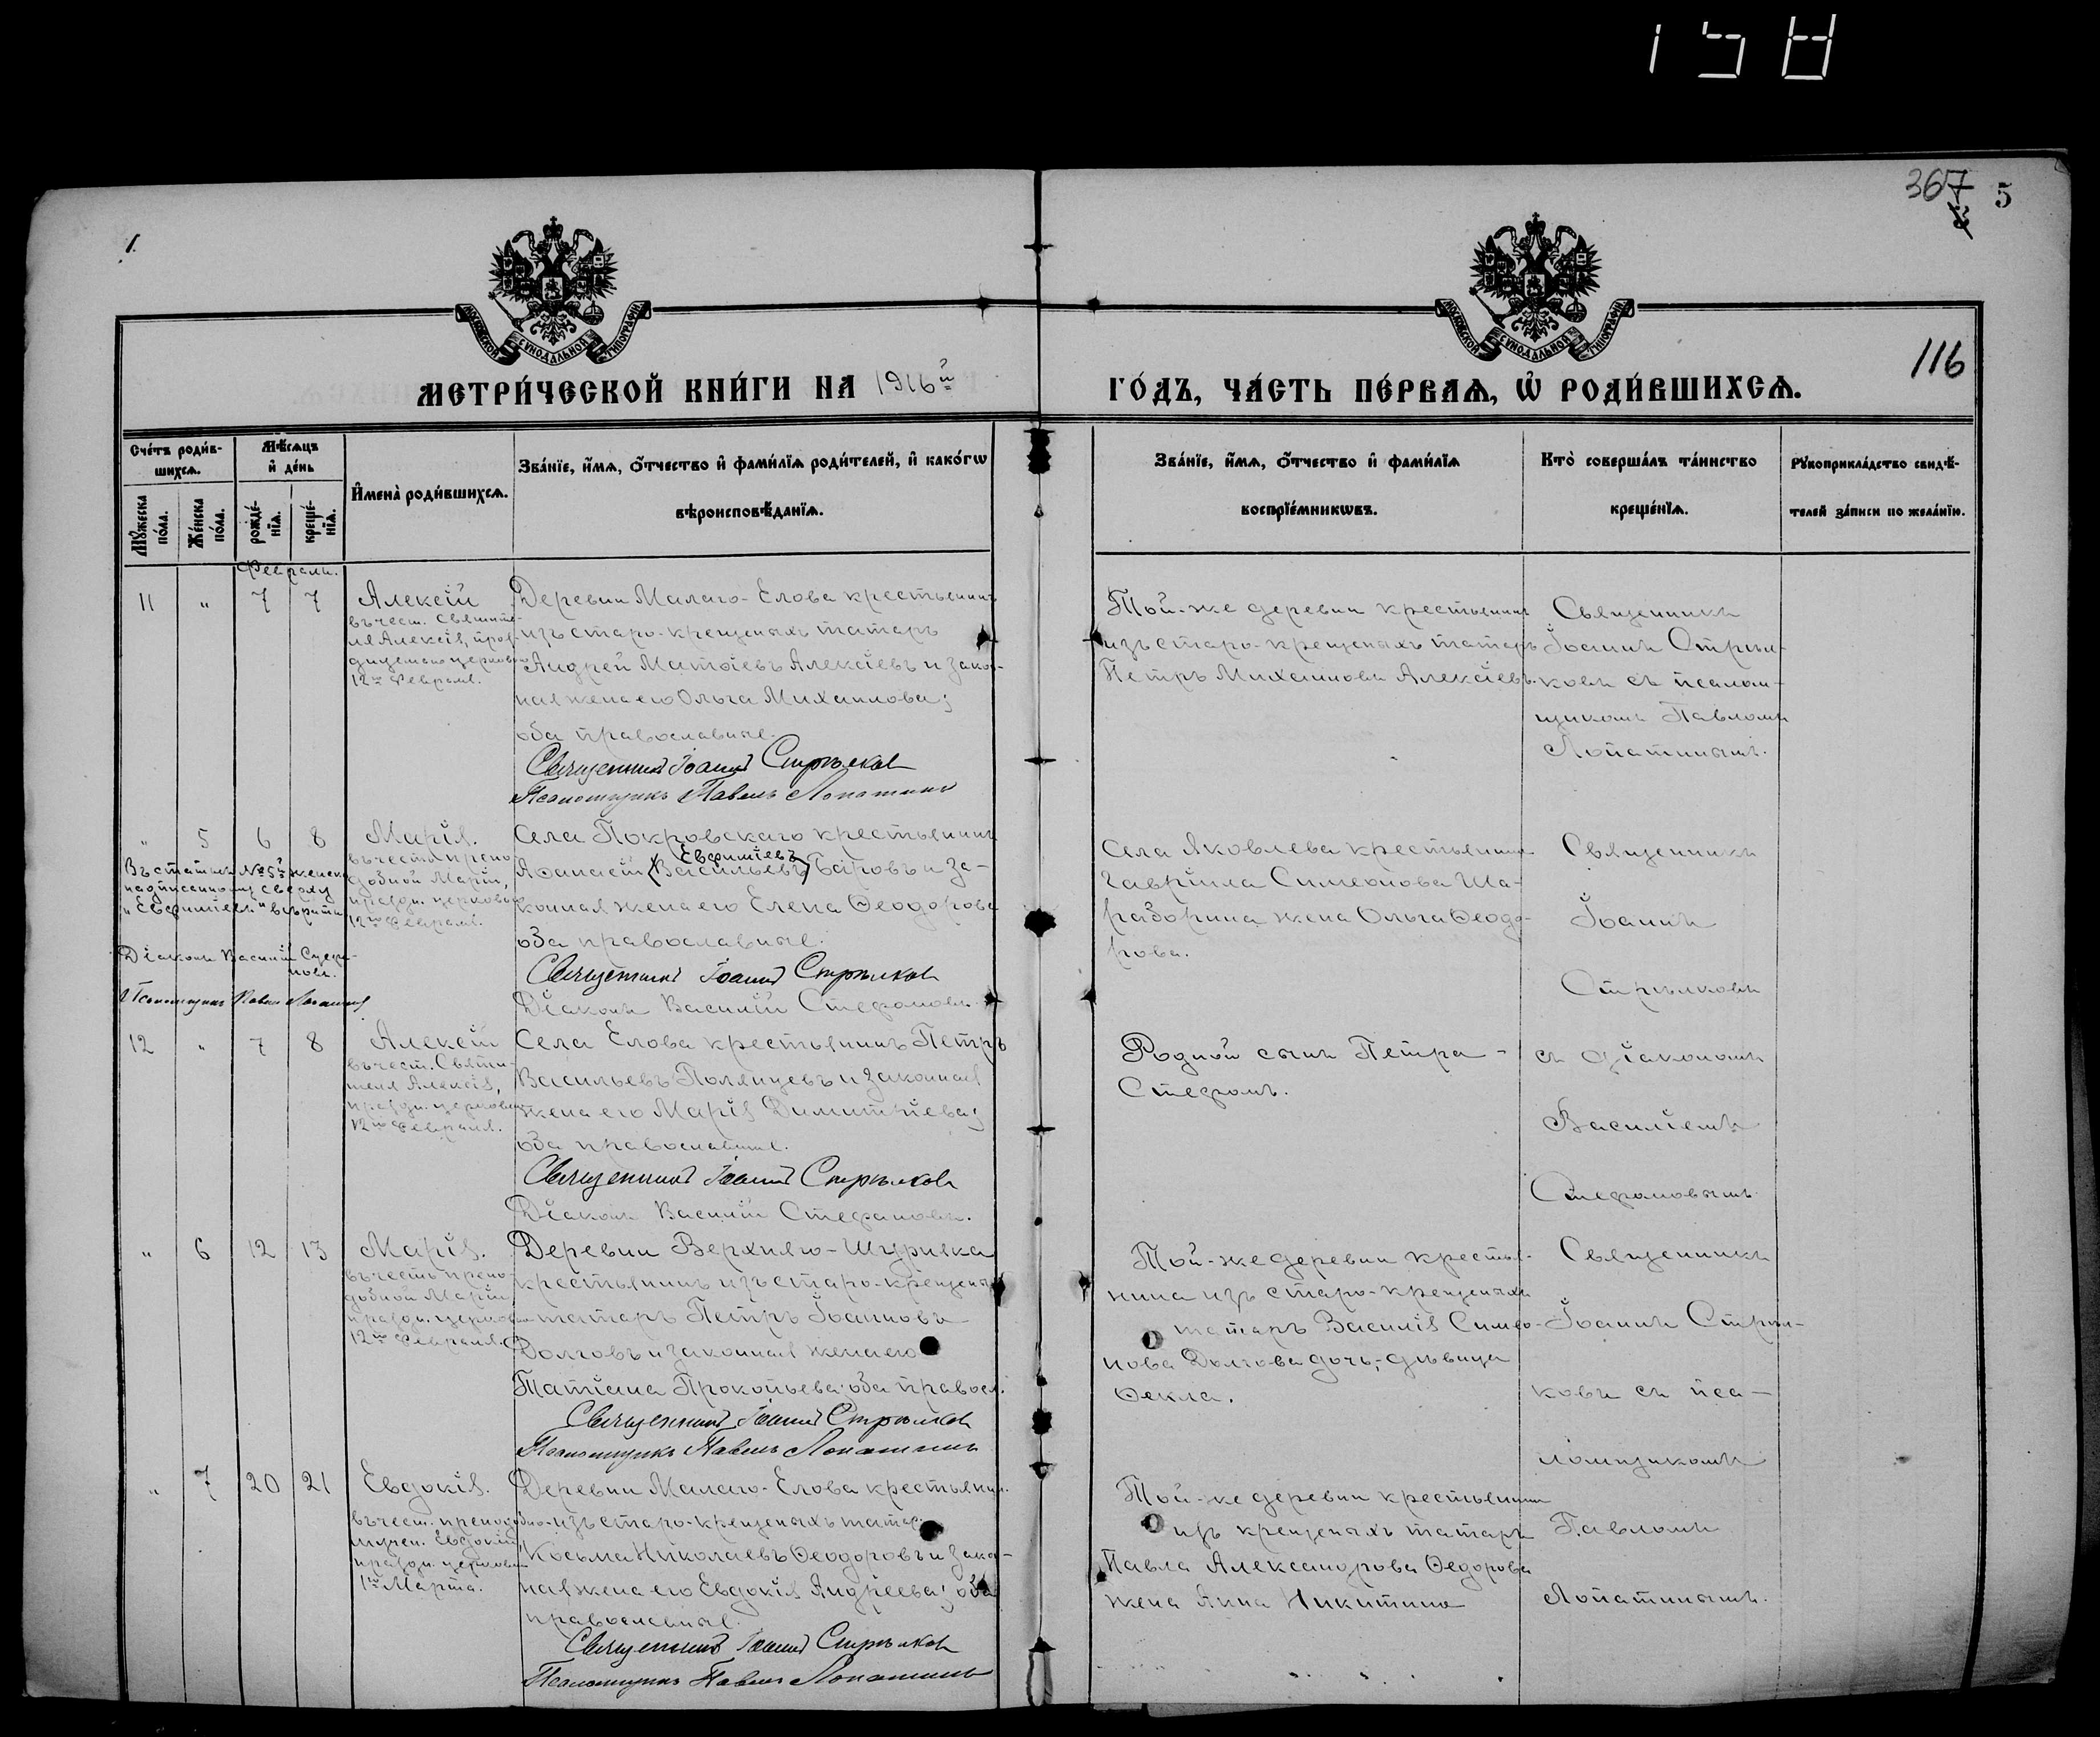 158
367
5
1.
116
МОСКОВСКОЙ СѴНОДАЛЬНОЙ ТИПОГРАФІИ
МОСКОВСКОЙ СѴНОДАЛЬНОЙ ТИПОГРАФІИ
МЕТРИ́ЧЕСКОЙ КНИ́ГИ НА 1916й ГО́ДЪ, ЧА́СТЬ ПЕ́РВАѦ, Ѡ҆ РОДИ́ВШИХСѦ.
Сче́тъ роди́в-
шихсѧ.
Мꙋ́жеска по́ла.
Же́нска по́ла.
Мѣ́сѧцъ
и҆ де́нь
рожде́-
нїѧ.
креще́-
нїѧ.
И҆мена̀ роди́вшихсѧ.
Зва́нїе, и҆́мѧ, ѻ҆́тчество и҆ фами́лїѧ роди́телей, и҆ како́гѡ
вѣроисповѣ́данїѧ.
Зва́нїе, и҆́мѧ, ѻ҆́тчество и҆ фами́лїѧ
воспрїе́мникѡвъ.
Кто̀ соверша́лъ та́инство
креще́нїѧ.
Рꙋкоприкла́дство свидѣ́-
телей за́писи по жела́нїю.
Февраль.
11 " 7 7
Алексій
въ чест. Святите-
ля Алексія, праз-
днуемаго церковью
12го Февраля.
Деревни Малаго-Елова крестьянинъ
изъ старо-крещеныхъ татаръ
Андрей Матѳіевъ Алексіевъ и закон-
ная жена его Ольга Михаилова;
оба православные.
Священникъ Іоаннъ Стрѣлковъ
Псаломщикъ Павелъ Лопатинъ
Той-же деревни крестьянинъ
изъ старо-крещеныхъ татаръ
Петръ Михаиловъ Алексіевъ.
Священникъ
Іоаннъ Стрѣл-
ковъ съ псалом-
щикомъ Павломъ
Лопатинымъ.
" 5 6 8
Марія.
въ честь препо-
добной Маріи,
праздн. церковью
12го Февраля.
Въ статьѣ № 5й женск.
надписанному сверху
"Евфиміевъ" вѣрить
Діаконъ Василій Стефа-
новъ.
Псаломщикъ Павелъ Лопатинъ
Села Покровскаго крестьянинъ
Евфиміевъ
Аѳанасій (Васильевъ) Баровъ и за-
конная жена его Елена Ѳеодорова
оба православные.
Священникъ Іоаннъ Стрѣлковъ
Діаконъ Василій Стефановъ.
Села Яковлева крестьянина
Гавріила Симеонова Ша-
работина жена Ольга Ѳеодо-
рова.
Священникъ
Іоаннъ
Стрѣлковъ
12 " 7 8
Алексій
въ чест. Святи-
теля Алексія,
праздн. церковью
12го Февраля.
Села Елова крестьянинъ Петръ
Васильевъ Полянцевъ и законная
жена его Марія Димитріева;
оба православные.
Священникъ Іоаннъ Стрѣлковъ
Діаконъ Василій Стефановъ.
Родной сынъ Петра -
Стефанъ.
съ діакономъ
Василіемъ
Стефановымъ.
" 6 12 13
Марія.
въ честь препо-
добной Маріи
праздн. церковью
12го Февраля.
Деревни Верхняго-Шурняка
крестьянинъ изъ старо-крещеныхъ
татаръ Петръ Іоанновъ
Долговъ и законная жена его
Татіана Прокопьева; оба правосл.
Священникъ Іоаннъ Стрѣлковъ
Псаломщикъ Павелъ Лопатинъ
Той-же деревни крестья-
нина изъ старо-крещеныхъ
татаръ Василія Симео-
нова Долгова дочь, дѣвица
Ѳекла.
Священникъ
Іоаннъ Стрѣл-
ковъ съ пса-
ломщикомъ
" 7 20 21
Евдокія.
въ чест. преподобно-
мучен. Евдокіи,
праздн. церковью
1го Марта.
Деревни Малаго-Елова крестьянин.
изъ старо-крещеныхъ татар.
Косьма Николаевъ Ѳеодоровъ и закон-
ная жена его Евдокія Андреева; оба
православные.
Священникъ Іоаннъ Стрѣлковъ
Псаломщикъ Павелъ Лопатинъ
Той-же деревни крестьянина
изъ крещеныхъ татаръ
Павла Александрова Ѳеодорова
жена Анна Никитина
Павломъ
Лопатинымъ.